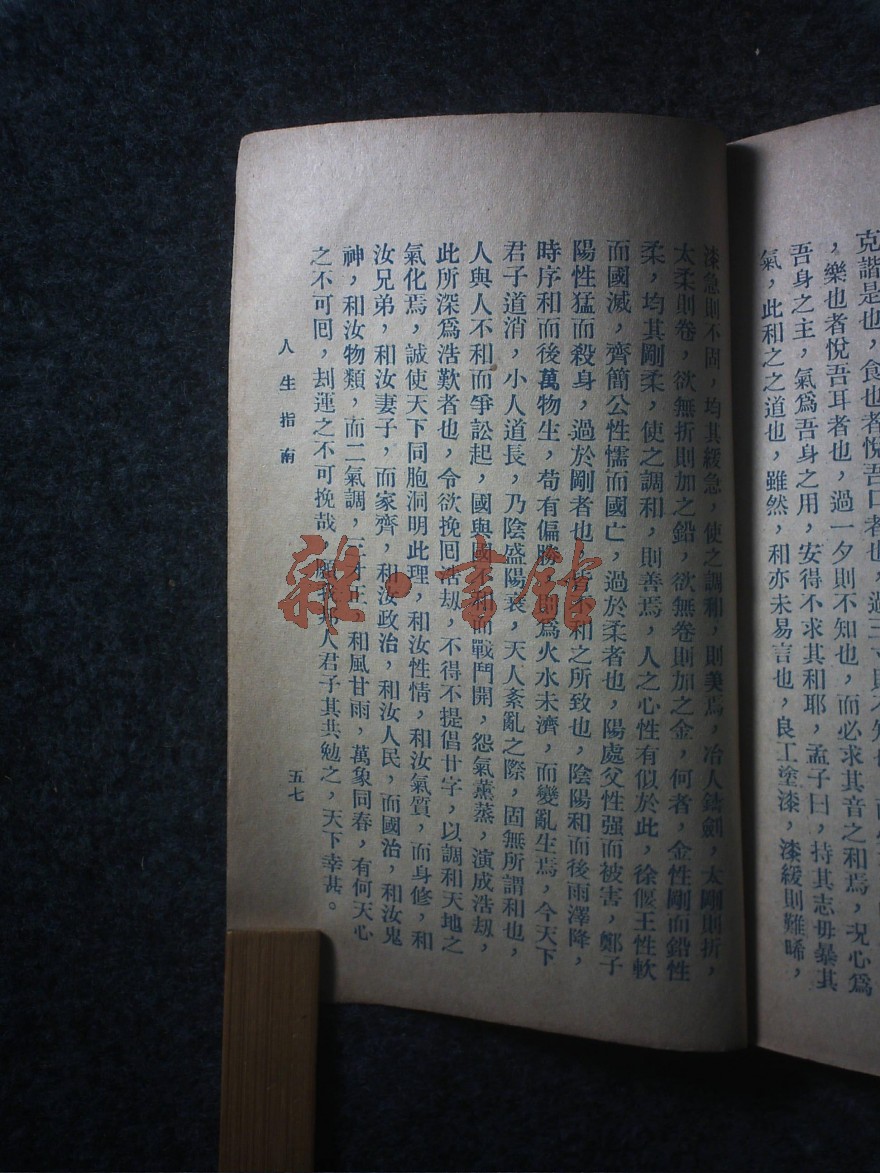 克諧是也，食也者悅吾口者也，過三寸則不知也，
，樂也者悅吾耳者也，過一夕則不知也，而必求其音之和焉，況心爲
吾身之主，氣爲吾身之用，安得不求其和耶，孟子曰，持其志毋暴其
氣，此和之之道也，雖然，和亦未易言也，良工塗漆，漆緩則難晞，
漆急則不固，均其緩急，使之調和，則美焉，冶人鑄劍，太剛則折，
太柔則卷，欲無折則加之鉛，欲無卷則加之金，何者，金性剛而鉛性
柔，均其剛柔，使之調和，則善焉，人之心性有似於此，徐偃王性軟
而國滅，齊簡公性懦而國亡，過於柔者也，陽處父性强而被害，鄭子
陽性猛而殺身，過於剛者也，皆不和之所致也，陰陽和而後雨澤降，
時序和而後萬物生，苟有偏勝，則爲火水未濟，而變亂生焉，今天下
君子道消，小人道長，乃陰盛陽衰，天人紊亂之際，固無所謂和也，
人與人不和而爭訟起，國與國不和而戰鬥開，怨氣薰蒸，演成浩劫，
此所深爲浩歎者也，令欲挽回浩劫，不得不提倡廿字，以調和天地之
氣化焉，誠使天下同胞洞明此理，和汝性情，和汝氣質，而身修，和
汝兄弟，和汝妻子，而家齊，和汝政治，和汝人民，而國治，和汝鬼
神，和汝物類，而二氣調，三才正，和風甘雨，萬象同春，有何天心
之不可囘，刦運之不可挽哉，願我人君子其共勉之，天下幸甚。
人生指南
五七
雜·書館